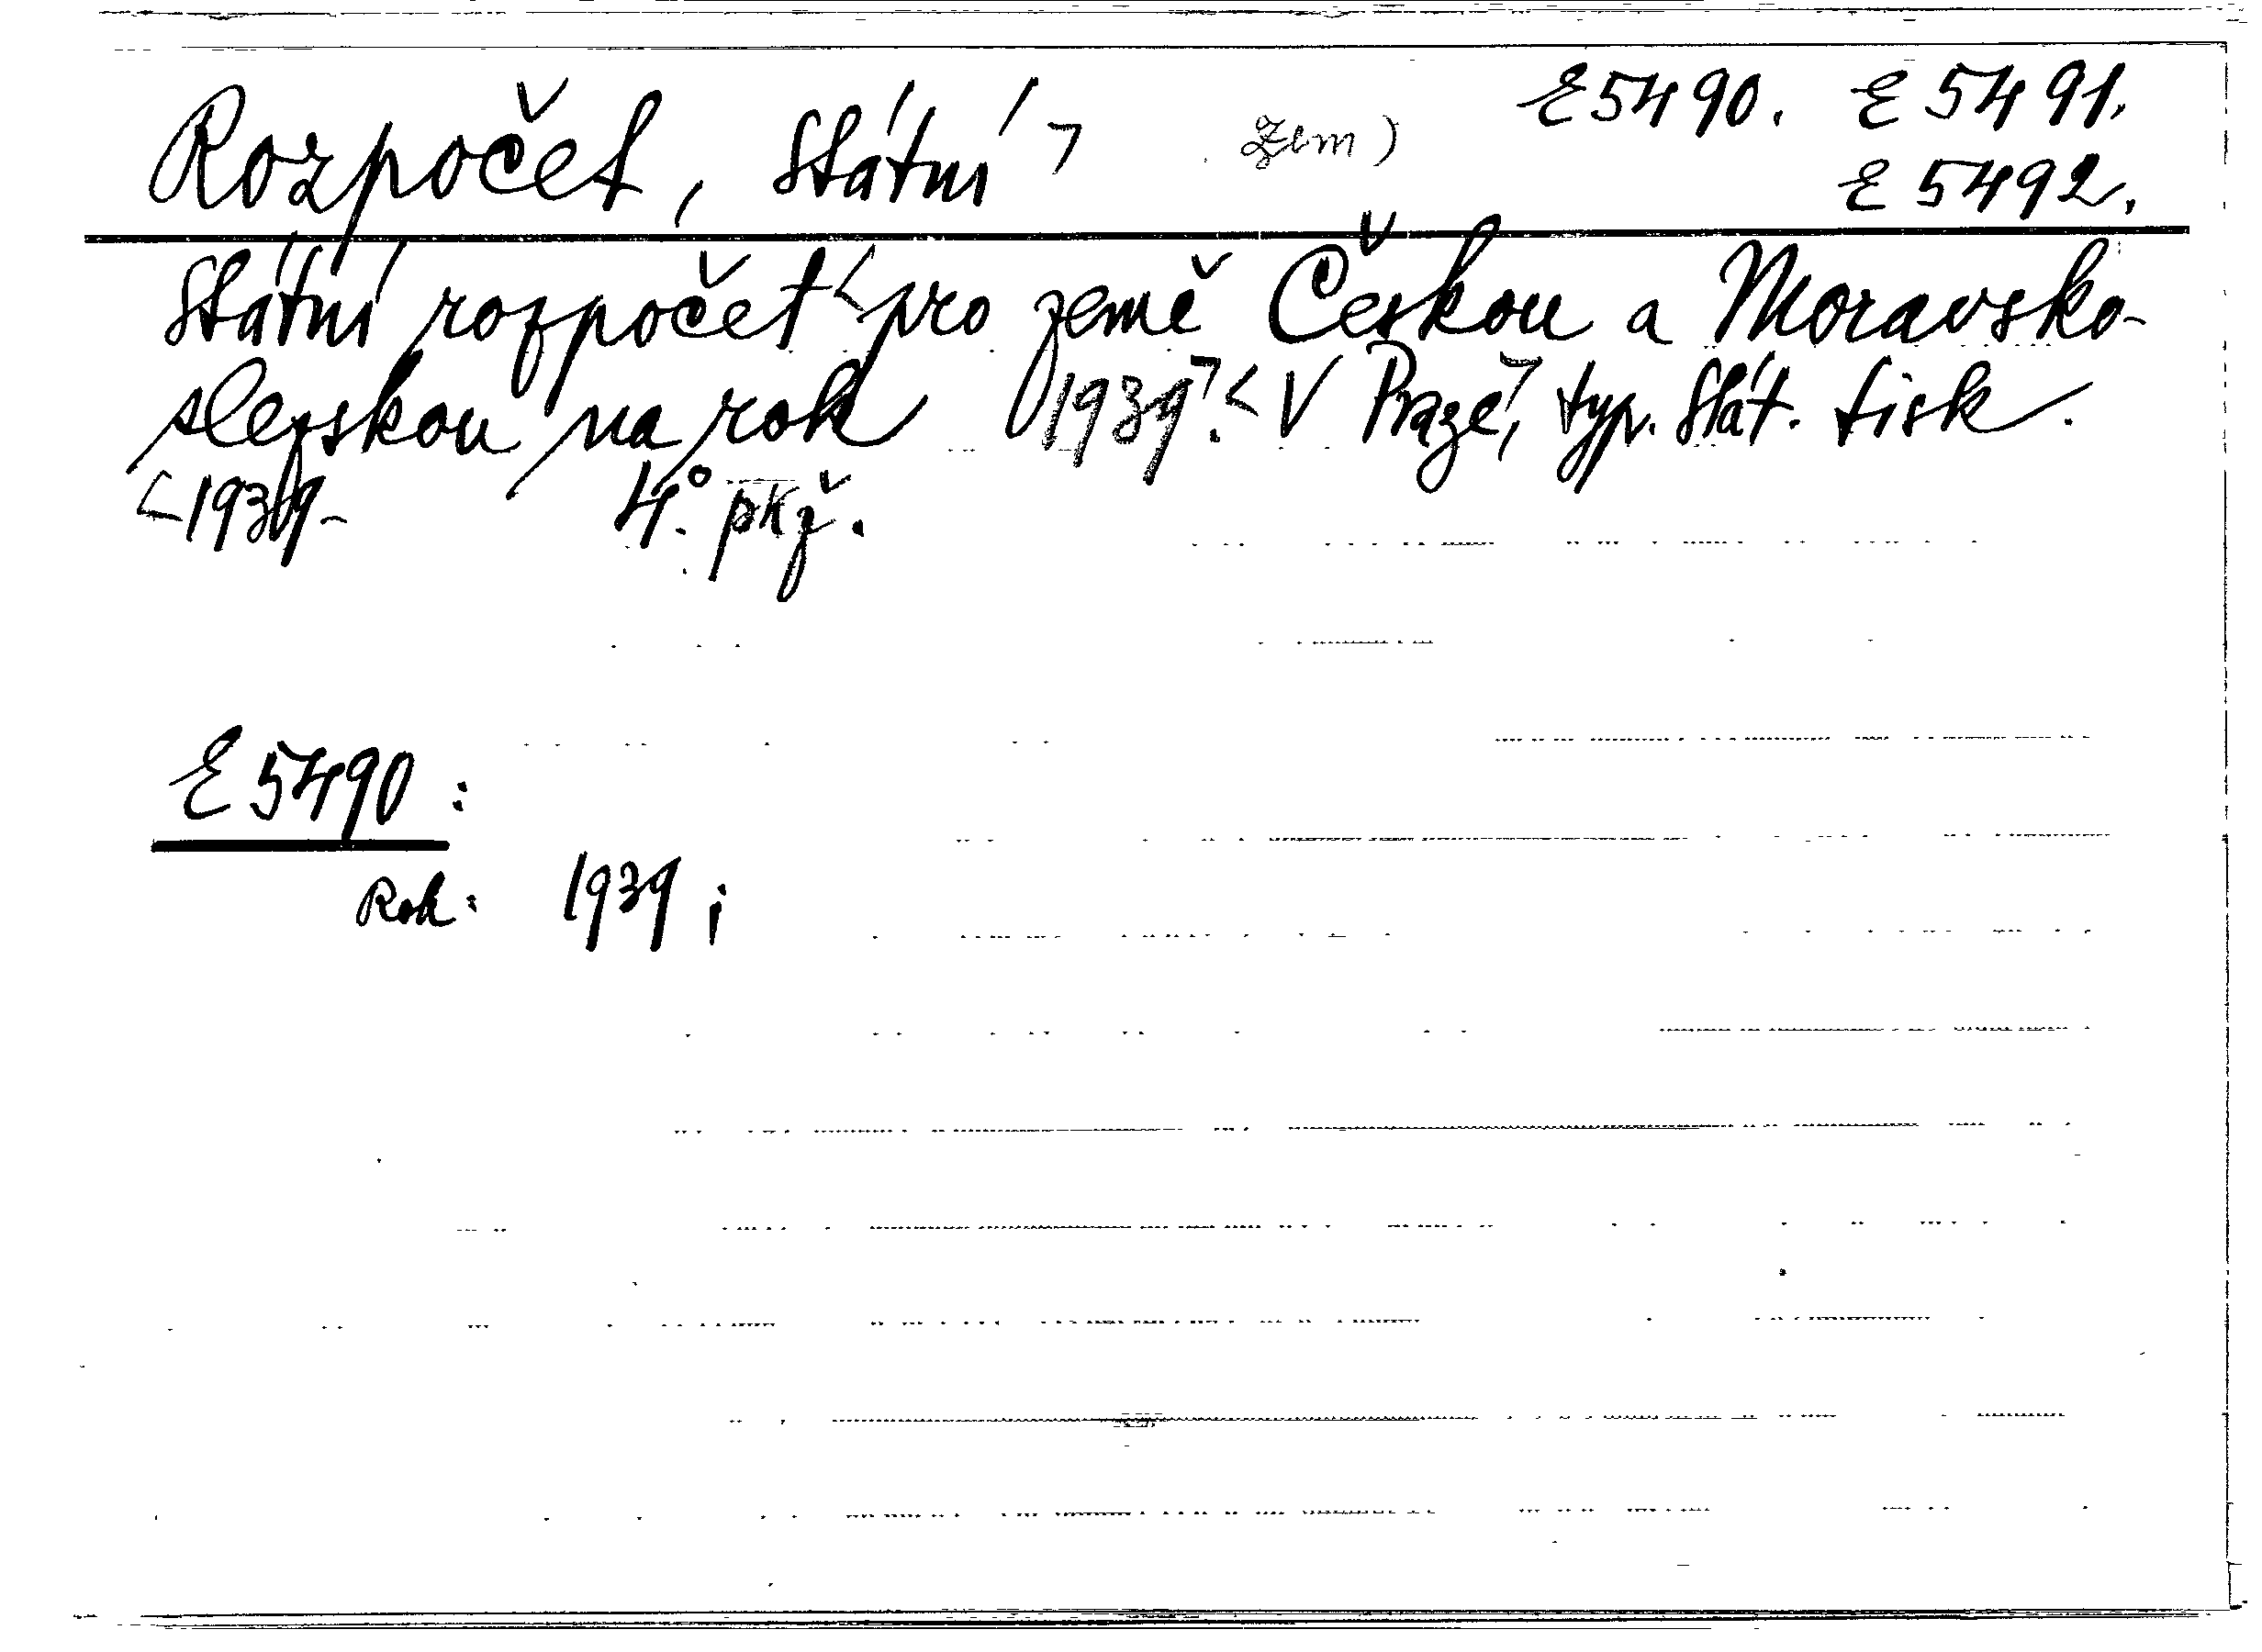 Rozpočet, státní > zem) E 5490. E 5491.
E 5492.
Státní rozpočet < pro země Českou a Moravsko-
slezskou na rok 1939. > < V Praze, > typ. Stát. tisk.
< 1939- 4°. pkž.
E 5490:
Rok: 1939;